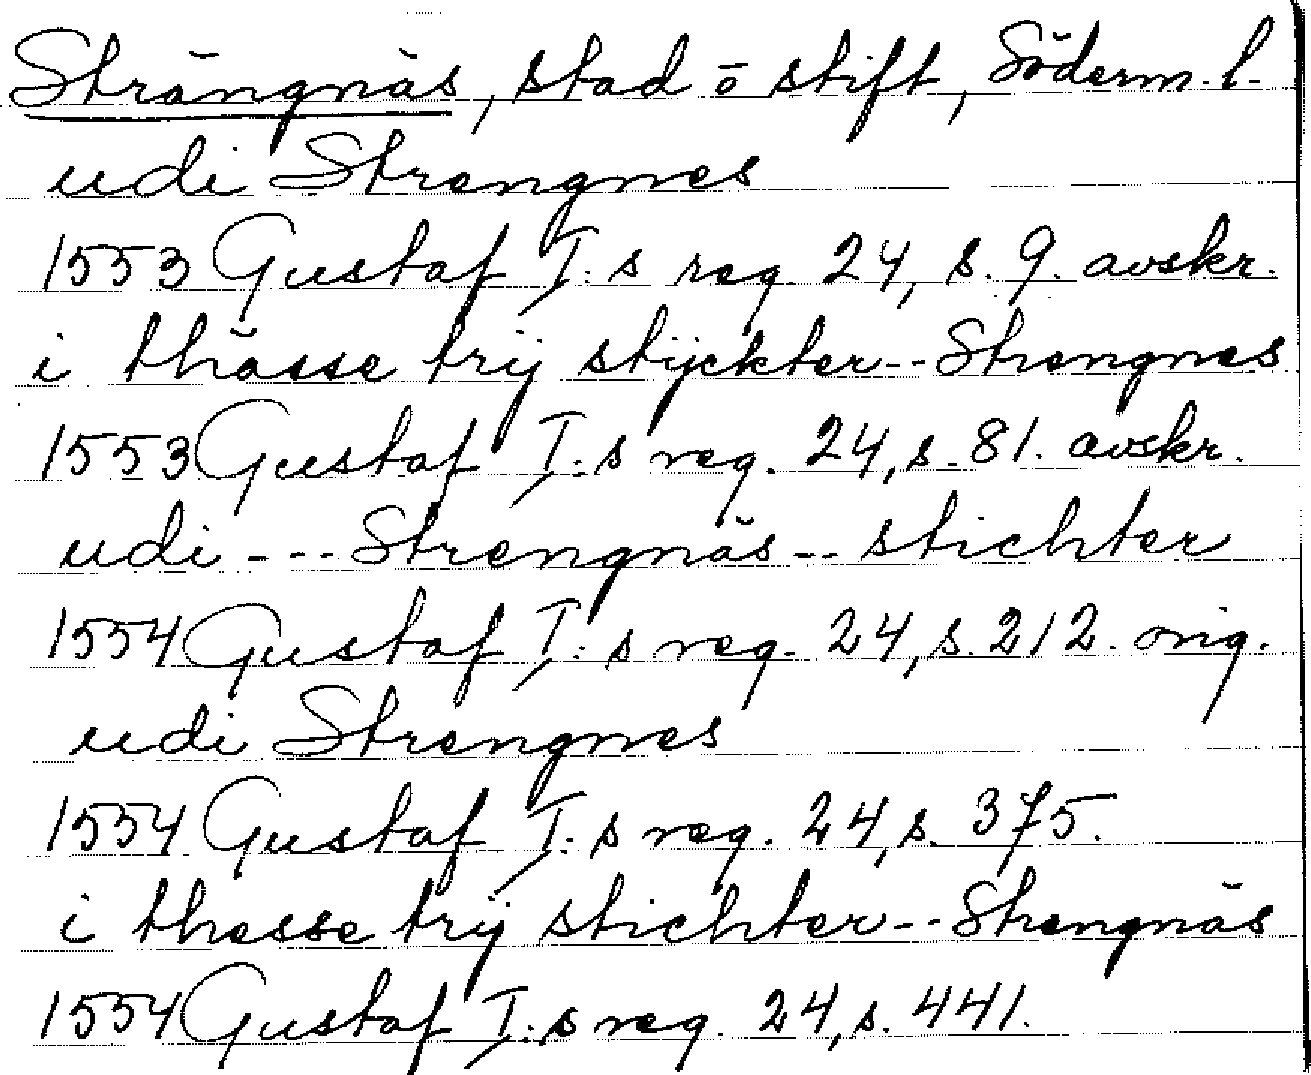 Strängnäs, stad o stift, Söderm. l.
udi Strengnes
1553 Gustaf I:s reg. 24, s. 9. avskr.
i thässe trij stijckter--Strengnes
1553 Gustaf I:s reg. 24, s. 81. avskr.
udi ---Strengnäs-- stichter
1554 Gustaf I:s reg. 24, s. 212. orig.
udi Strengnes
1554 Gustaf I:s reg. 24, s. 375.
i thesse trij stichter--Strengnäs
1554 Gustaf I:s reg. 24, s. 441.